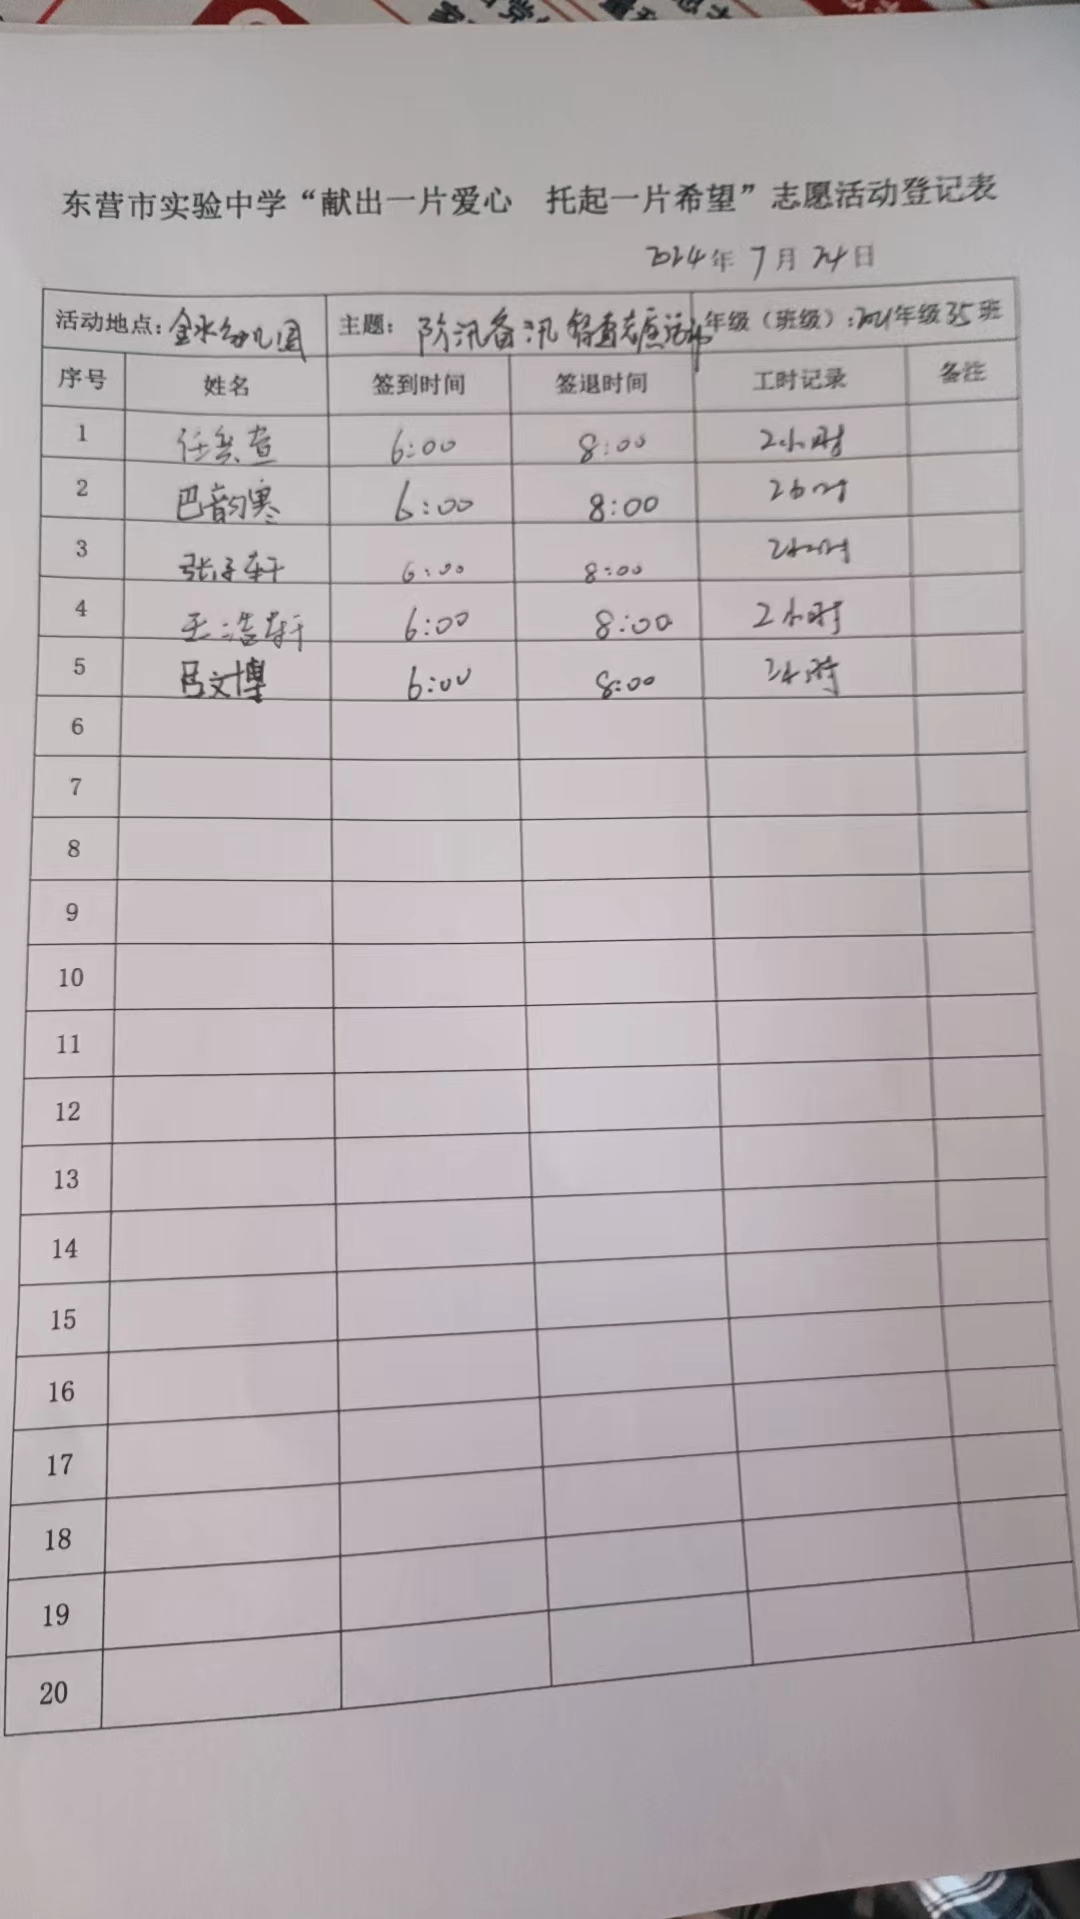 东营市实验中学“献出一片爱心 托起一片希望”志愿活动登记表
2024年7月24日
活动地点：金水幼儿园 主题：防汛备汛 志愿活动 年级（班级）：2021年级35班
序号 姓名 签到时间 签退时间 工时记录 备注
1 任 6:00 8:00 2小时
2 巴韵寒 6:00 8:00 2小时
3 张子轩 6:00 8:00 2小时
4 王浩轩 6:00 8:00 2小时
5 吕文博 6:00 8:00 小时
6
7
8
9
10
11
12
13
14
15
16
17
18
19
20